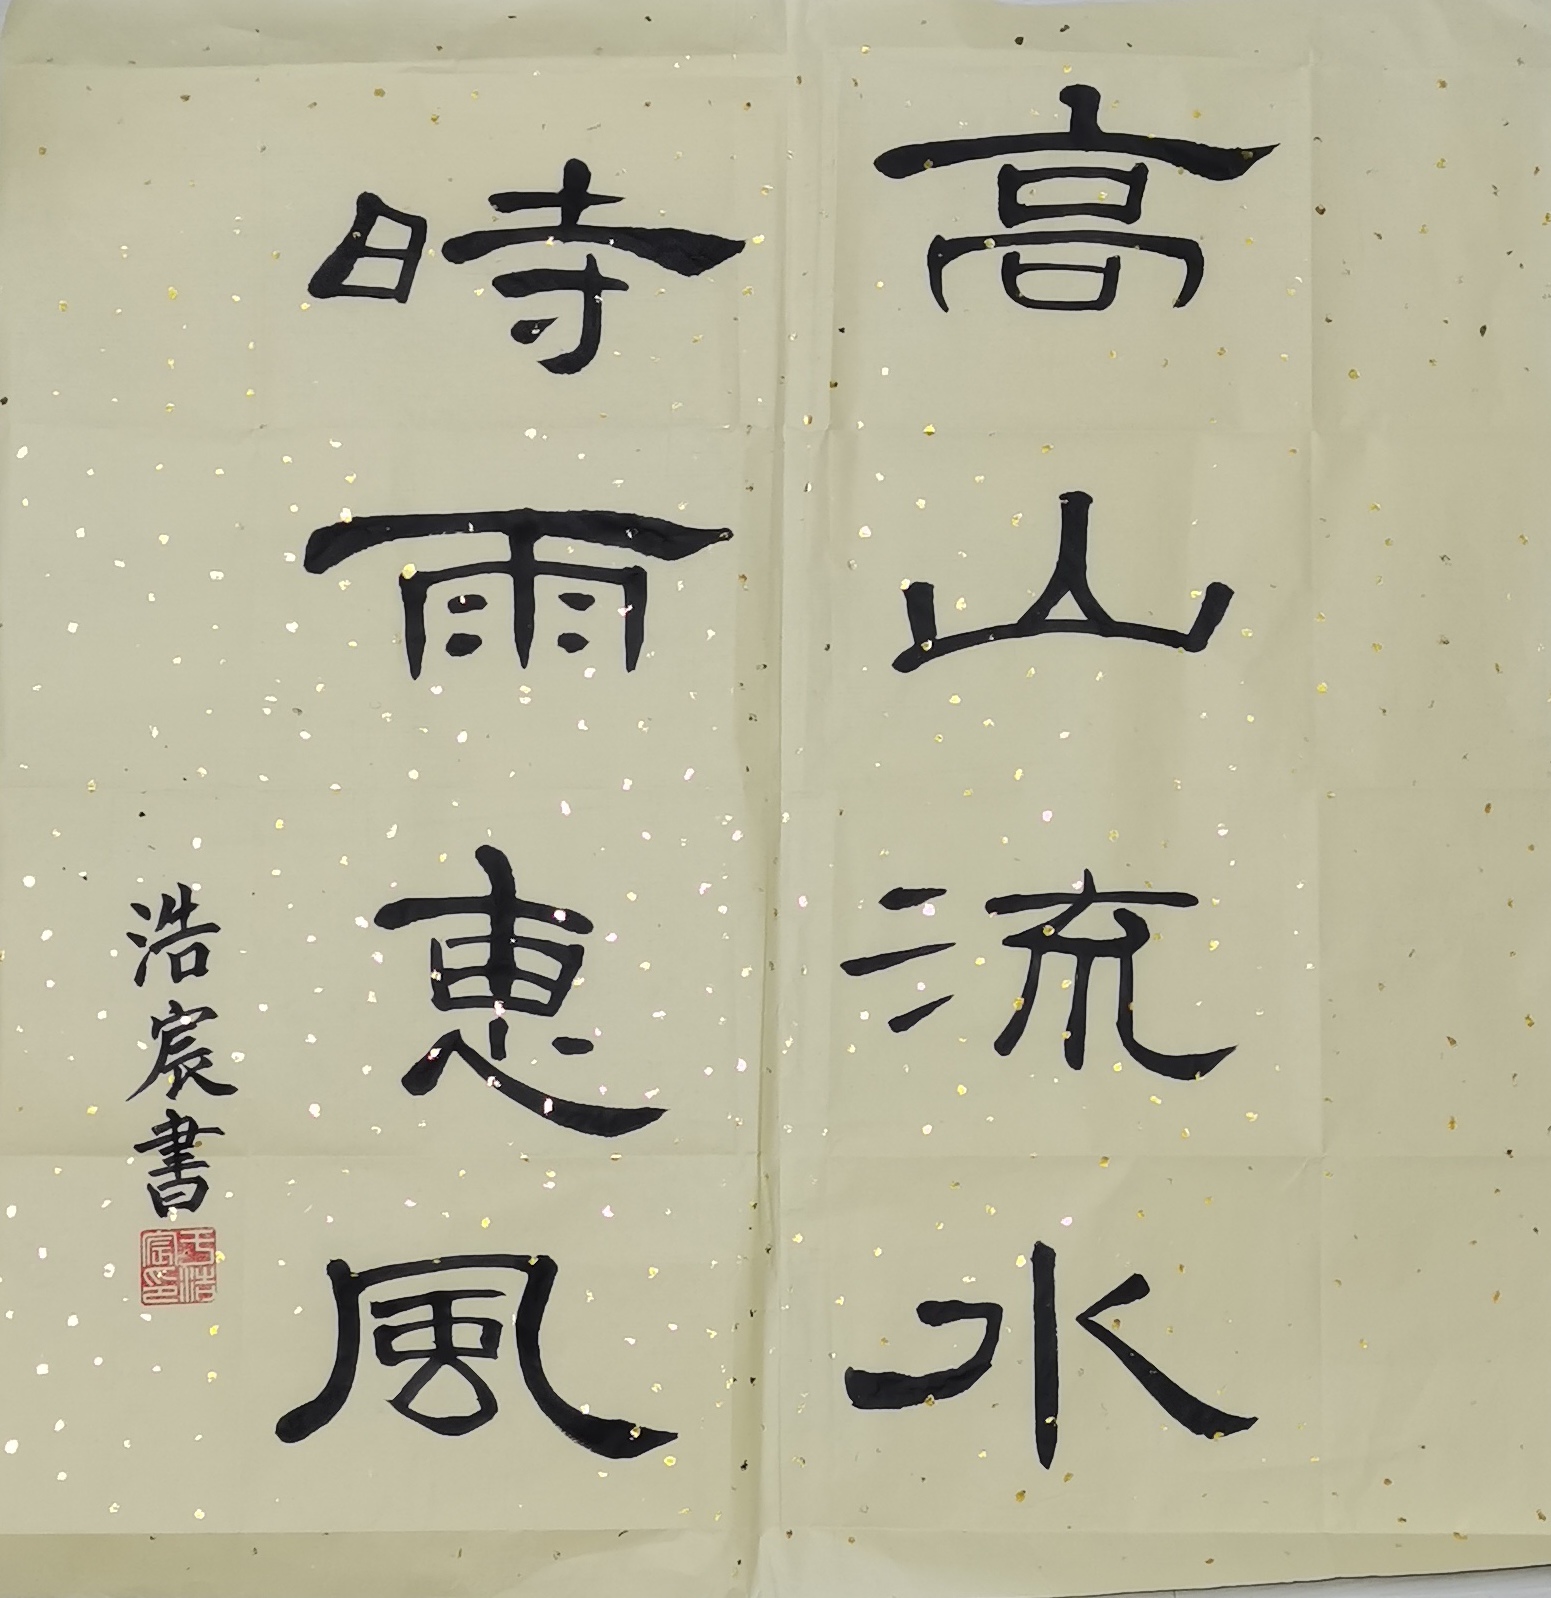 高山流水
時雨惠風
浩宸書